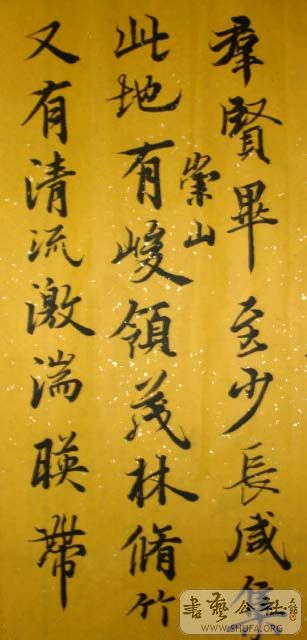 羣賢畢至少長咸集
此地有崇山峻領茂林脩竹
又有清流激湍暎帶
书艺公社
WWW.SHUFA.ORG